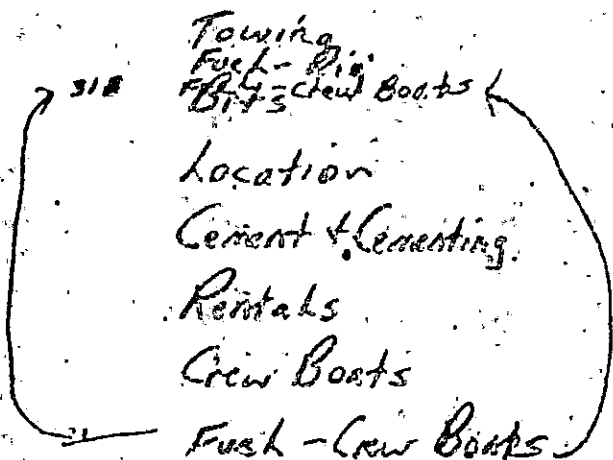 Towing
Fuel - Rig
318 Fuel - Crew Boats
Bits
Location
Cement & Cementing
Rentals
Crew Boats
Fuel - Crew Boats